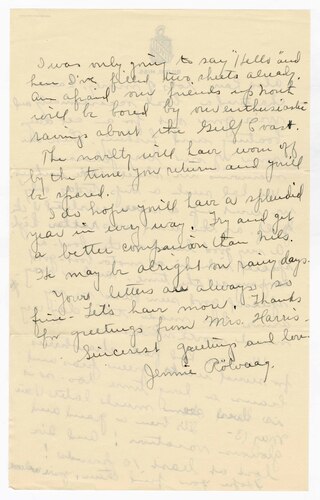 I was only going to say "Hello" and
here I've filled two sheets already.
Am afraid our friends up Nort
will be bored by our enthusiastic
ravings about the Gulf Coast.
The novelty will have worn off
by the time you return and you'll
be spared.
I do hope you'll have a splendid
year in every way. Try and get
a better companion than Nils.
He may be alright on rainy days.
Your letters are always so
fine. Let's have more. Thanks
for greetings from Mrs. Harris.
Sincerest greetings and love
Jennie Rölvaag.